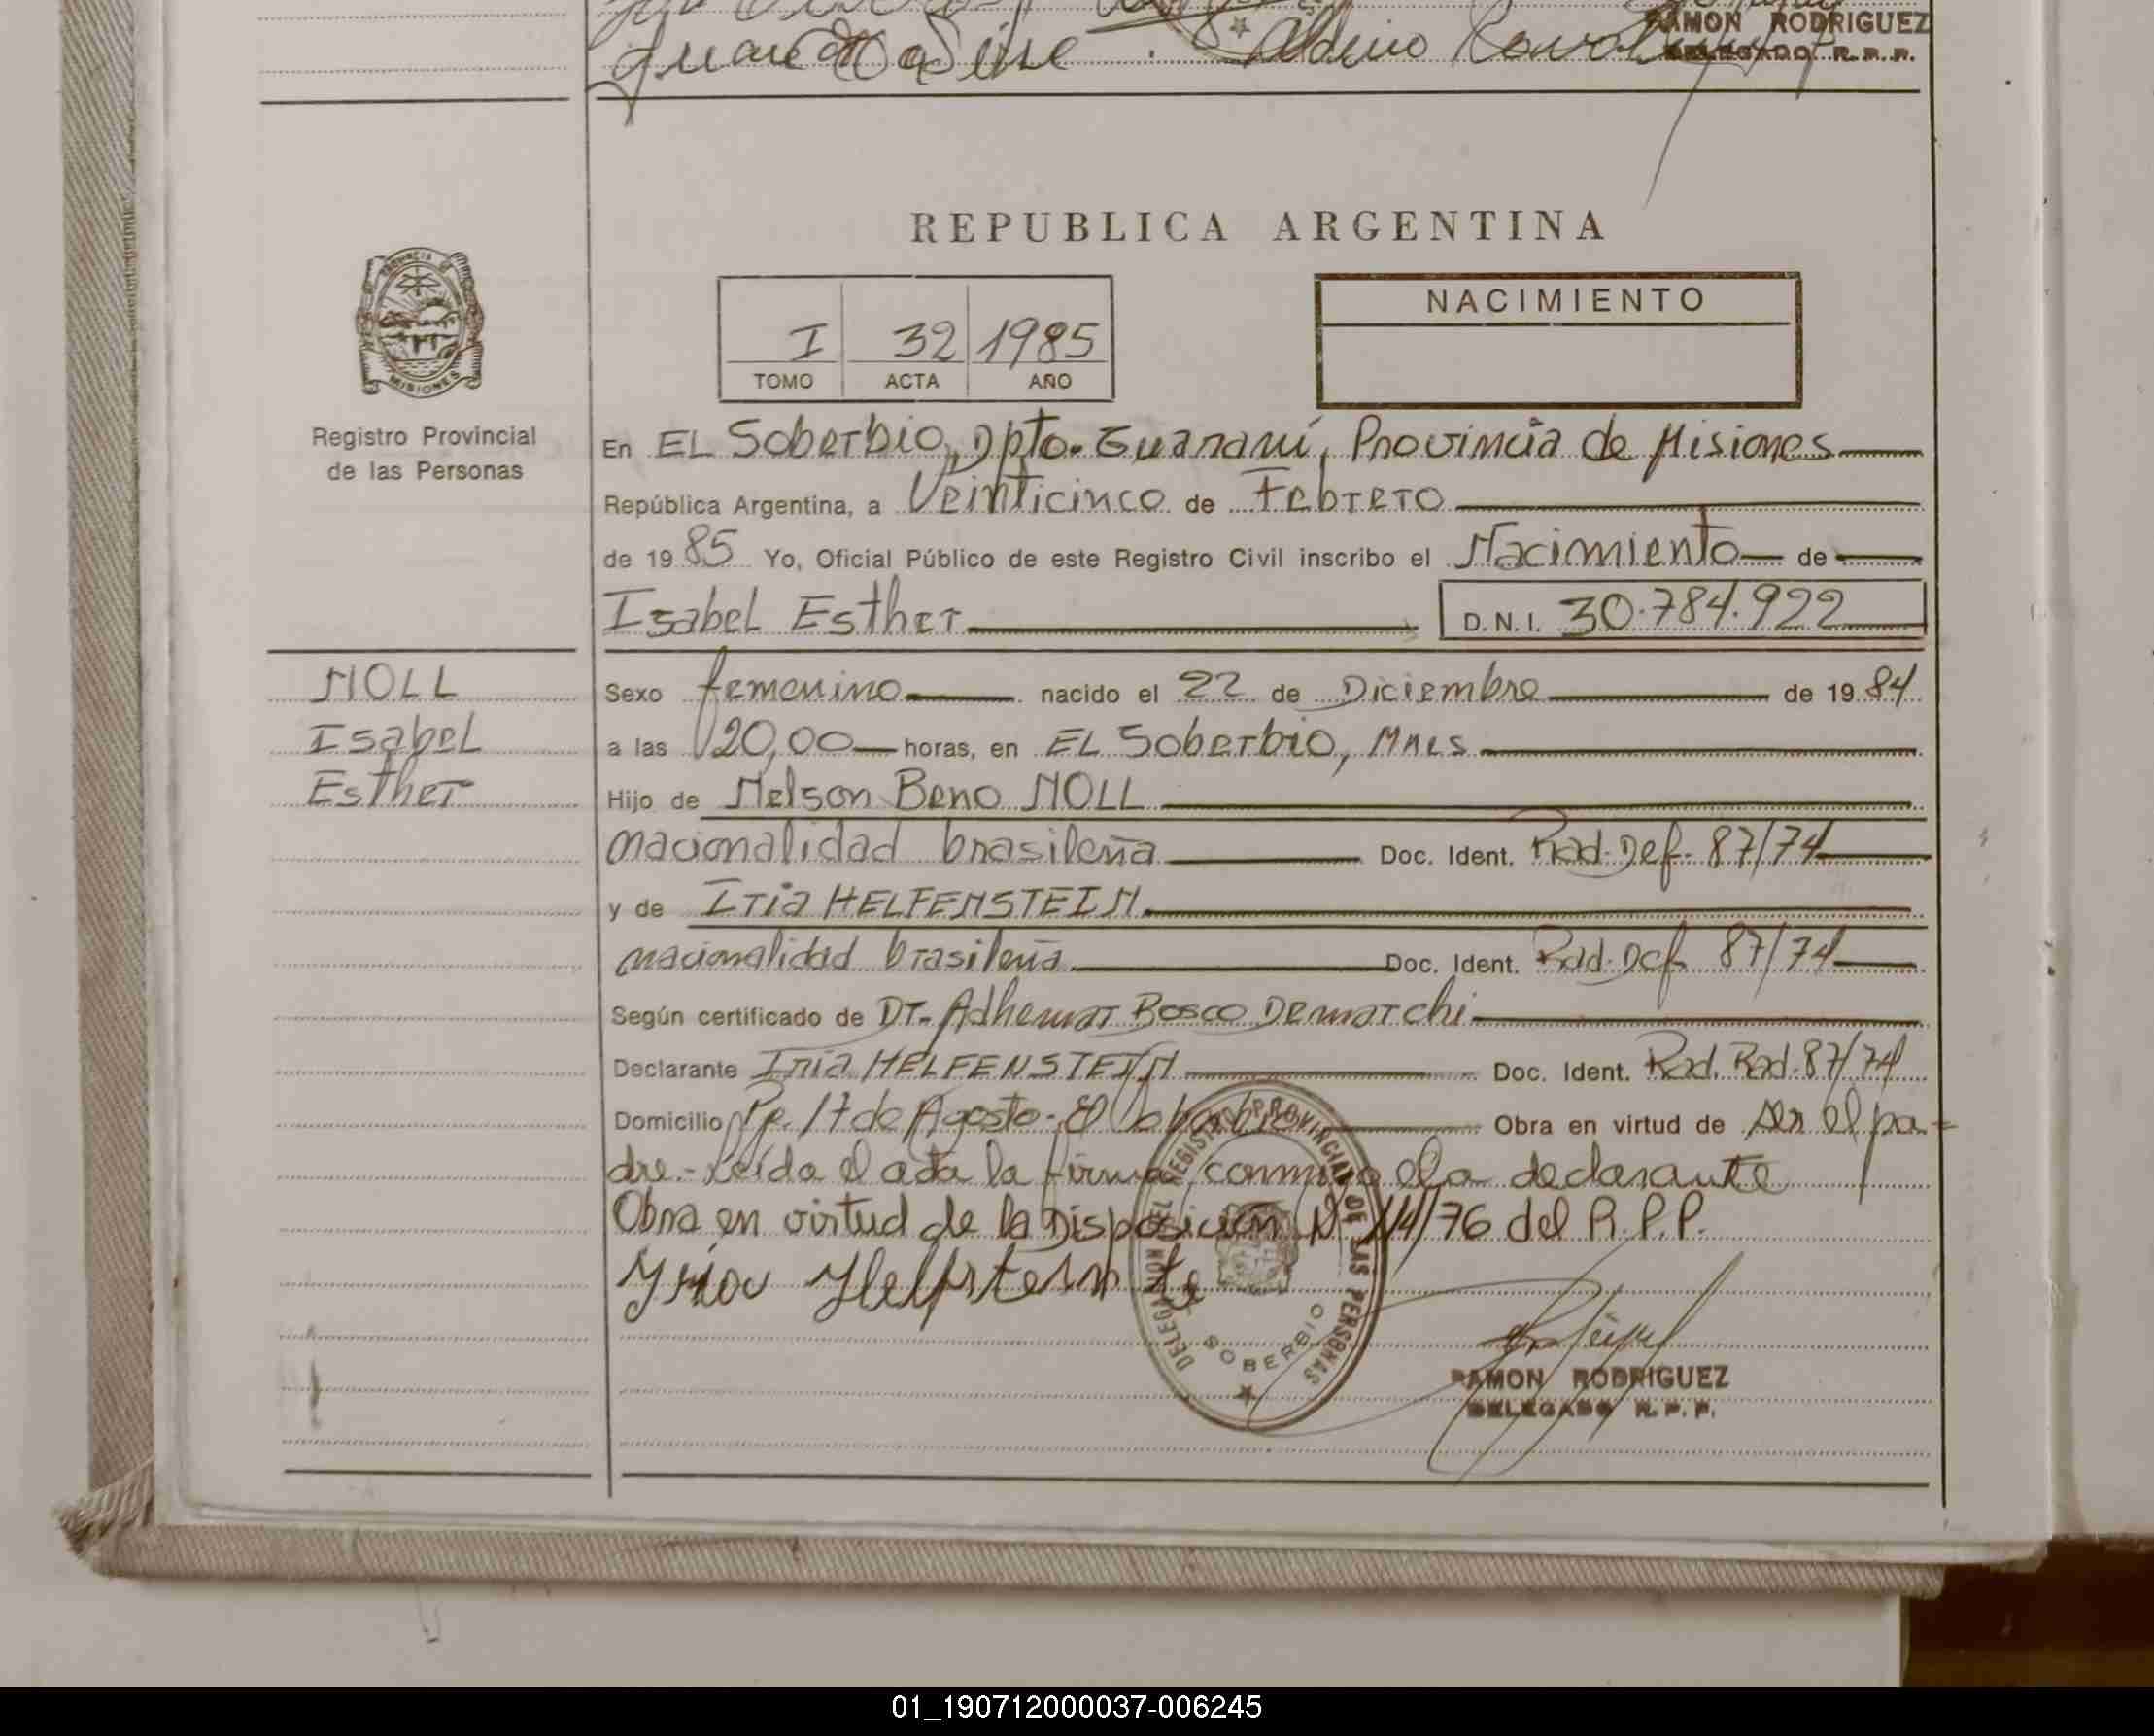 RAMON RODRIGUEZ
DELEGADO R.P.P.
REPUBLICA ARGENTINA
PROVINCIA DE
MISIONES
Registro Provincial
de las Personas
I 32 1985
TOMO ACTA AÑO
NACIMIENTO
En EL Soberbio, Dpto. Guaraní, Provincia de Misiones
República Argentina, a Veinticinco de Febrero
de 1985 Yo, Oficial Público de este Registro Civil inscribo el Nacimiento de
Isabel Esther D.N.I. 30.784.922
NOLL
Isabel
Esther
Sexo femenino nacido el 22 de Diciembre de 1984
a las 20,00 horas, en EL Soberbio, Mnes
Hijo de Nelson Beno NOLL
nacionalidad brasileña Doc. Ident. Rad. Def. 87/74
y de Iria HELFENSTEIN
nacionalidad brasileña Doc. Ident. Rad. Def 87/74
Según certificado de Dr. Adhemar Bosco Demarchi
Declarante Iria HELFENSTEIN Doc. Ident. Rad. Rad. 87/74
Domicilio 17 de Agosto - El Soberbio Obra en virtud de ser el pa-
dre.- Leída el acta la firma conmigo la declarante
Obra en virtud de la Disposición Nº 114/76 del R.P.P.
DELEGACION DEL REGISTRO PROVINCIAL DE LAS PERSONAS
SOBERBIO
RAMON RODRIGUEZ
DELEGADO R.P.P.
01_190712000037-006245